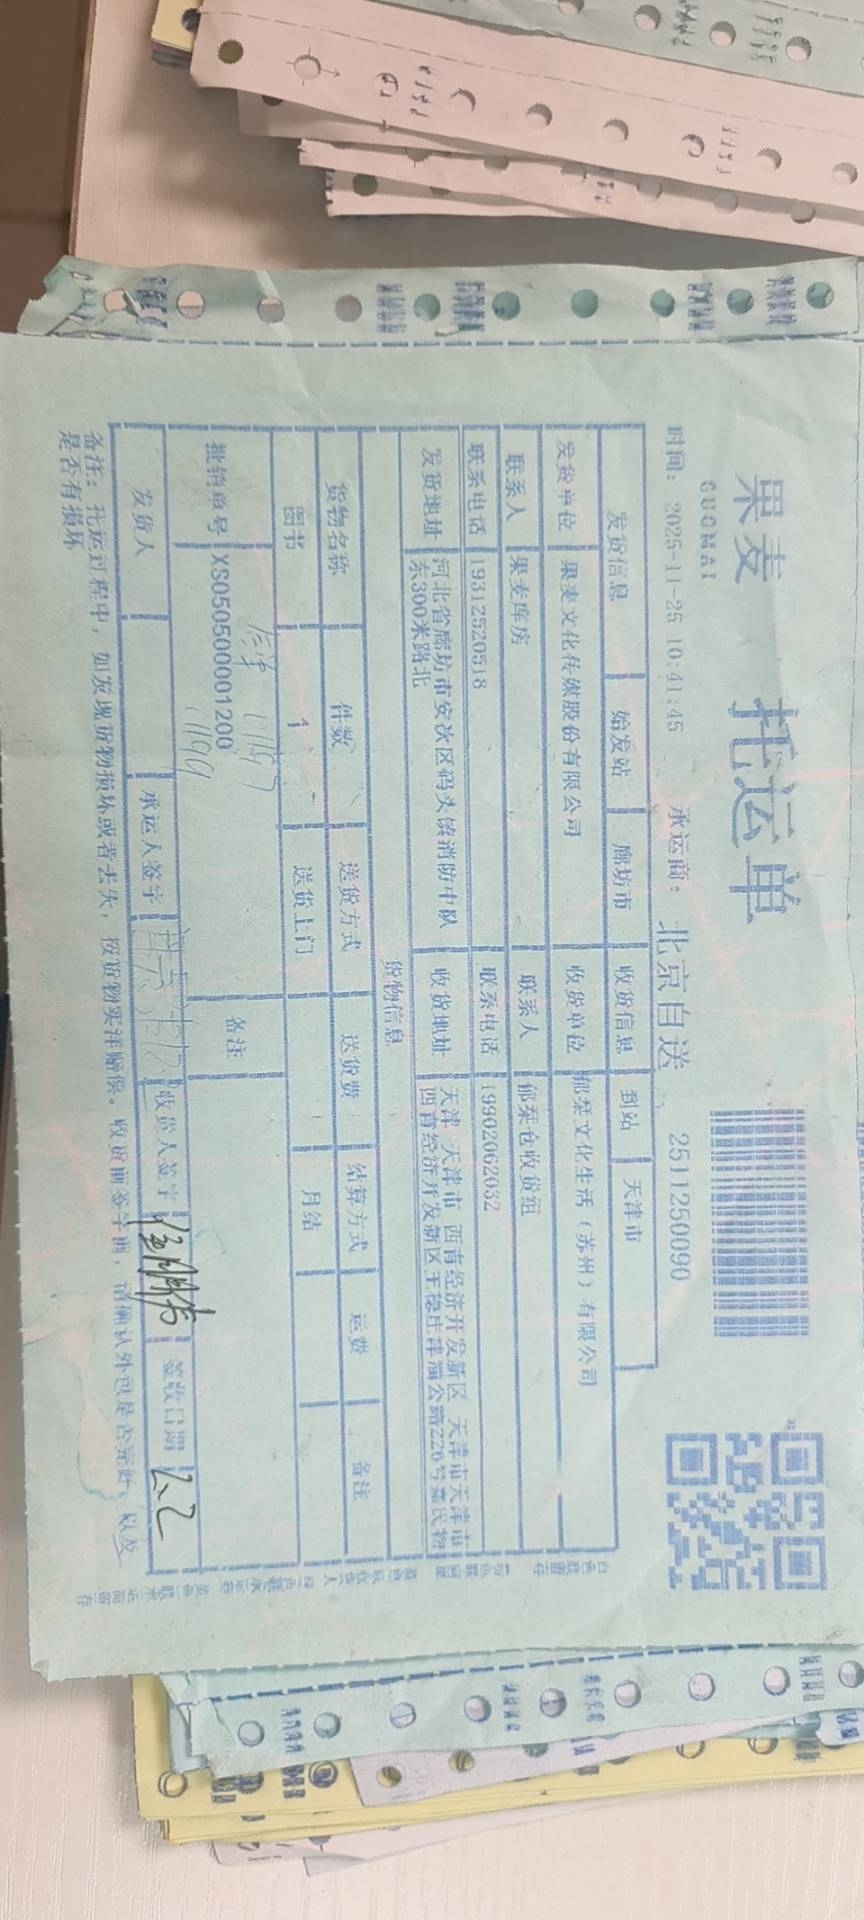 果麦
GUOMAI
托运单
时间: 2025-11-25 10:41:45 承运商: 北京自送 2511250090
发货信息 始发站 廊坊市 收货信息 到站 天津市
发货单位 果麦文化传媒股份有限公司 收货单位 郁栞文化生活（苏州）有限公司
联系人 果麦库房 联系人 郁栞仓收货组
联系电话 19312520518 联系电话 19902062032
发货地址 河北省廊坊市安次区码头镇消防中队东300米路北 收货地址 天津 天津市 西青经济开发新区 天津市天津市西青经济开发新区王稳庄津涞公路226号嘉民物
货物信息
货物名称 件数 送货方式 送货费 结算方式 运费 备注
图书 1 送货上门 月结
批销单号 XS050500001200 备注
发货人 承运人签字 收货人签字 签收日期 12.2
备注: 托运过程中, 如发现货物损坏或者丢失, 按货物实洋赔偿。收货前签字前, 请确认外包是否完好, 以及
是否有损坏